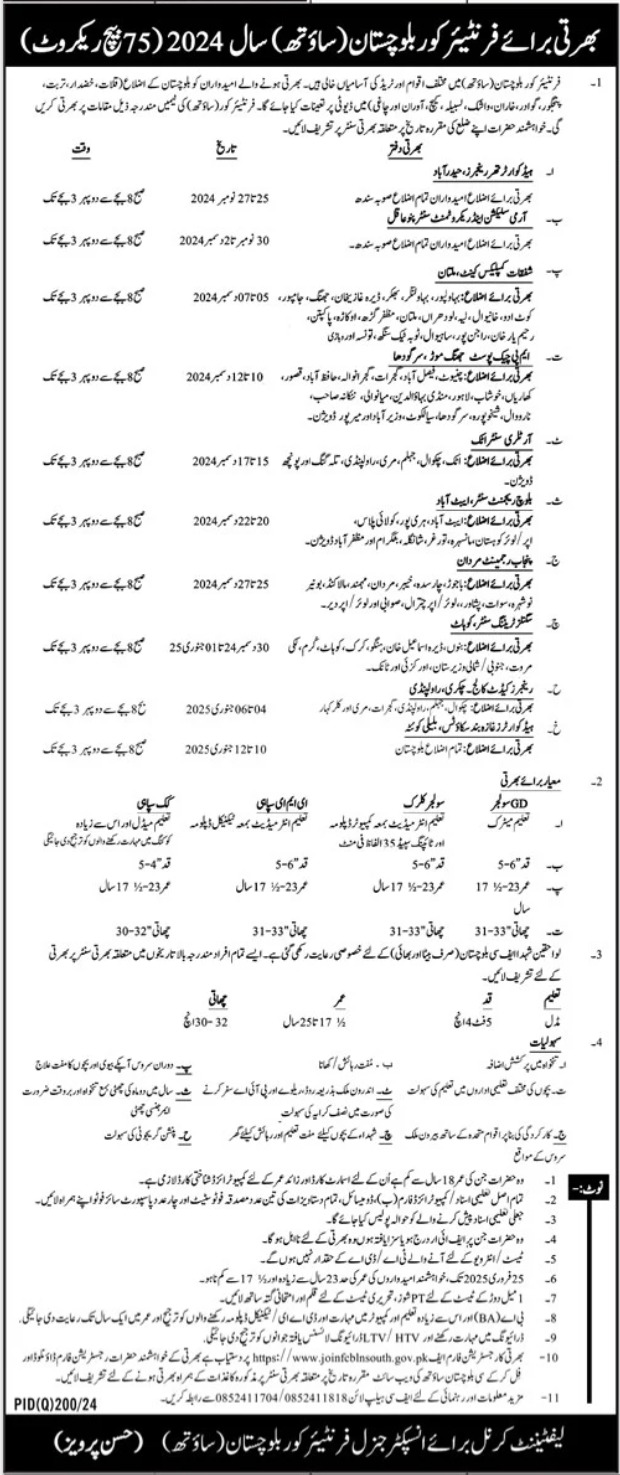 بھرتی برائے فرنٹیئر کور بلوچستان (ساؤتھ) سال 2024 (75 بیچ ریکروٹ)
1۔ فرنٹیئر کور بلوچستان (ساؤتھ) میں مختلف اقوام اور ٹریڈ کی آسامیاں خالی ہیں۔ بھرتی ہونے والے امیدواران کو بلوچستان کے اضلاع (قلات، خضدار، تربت،
پنجگور، گوادر، خاران، واشک، لسبیلہ، کیچ، آوران اور چاغی) میں ڈیوٹی پر تعینات کیا جائے گا۔ فرنٹیئر کور (ساؤتھ) کی ٹیمیں مندرجہ ذیل مقامات پر بھرتی کریں
گی۔ خواہشمند حضرات اپنے ضلع کی مقررہ تاریخ پر متعلقہ بھرتی سنٹر پر تشریف لائیں۔
بھرتی دفتر تاریخ وقت
ا۔ ہیڈ کوارٹر تھر رینجرز، حیدرآباد
بھرتی برائے اضلاع امیدواران تمام اضلاع صوبہ سندھ 25 تا 27 نومبر 2024 صبح 8 بجے سے دوپہر 3 بجے تک
ب۔ آرمی سلیکشن اینڈ ریکروٹمنٹ سنٹر پنوعاقل
بھرتی برائے اضلاع امیدواران تمام اضلاع صوبہ سندھ۔ 30 نومبر تا 2 دسمبر 2024 صبح 8 بجے سے دوپہر 3 بجے تک
پ۔ شفقات کمپلیکس کینٹ، ملتان
بھرتی برائے اضلاع: بہاولپور، بہاولنگر، بھکر، ڈیرہ غازیخان، جھنگ، جامپور، 05 تا 07 دسمبر 2024 صبح 8 بجے سے دوپہر 3 بجے تک
کوٹ ادو، خانیوال، لیہ، لودھراں، ملتان، مظفر گڑھ، اوکاڑہ، پاکپتن،
رحیم یار خان، راجن پور، ساہیوال، ٹوبہ ٹیک سنگھ، تونسہ اور وہاڑی
ت۔ ایم پی چیک پوسٹ جھنگ موڑ، سرگودھا
بھرتی برائے اضلاع: چنیوٹ، فیصل آباد، گجرات، گجرانوالہ، حافظ آباد، قصور، 10 تا 12 دسمبر 2024 صبح 8 بجے سے دوپہر 3 بجے تک
کھاریاں، خوشاب، لاہور، منڈی بہاؤالدین، میانوالی، ننکانہ صاحب،
نارووال، شیخوپورہ، سرگودھا، سیالکوٹ، وزیر آباد اور میرپور ڈویژن۔
ٹ۔ آرٹلری سنٹر اٹک
بھرتی برائے اضلاع: اٹک، چکوال، جہلم، مری، راولپنڈی، تلہ گنگ اور پونچھ 15 تا 17 دسمبر 2024 صبح 8 بجے سے دوپہر 3 بجے تک
ڈویژن۔
ث۔ بلوچ ریجمنٹ سنٹر، ایبٹ آباد
بھرتی برائے اضلاع: ایبٹ آباد، ہری پور، کولائی پلاس، 20 تا 22 دسمبر 2024 صبح 8 بجے سے دوپہر 3 بجے تک
اپر/لوئر کوہستان، مانسہرہ، تورغر، شانگلہ، بٹگرام اور مظفر آباد ڈویژن۔
ج۔ پنجاب رجمینٹ مردان
بھرتی برائے اضلاع: باجوڑ، چارسدہ، خیبر، مردان، مہمند، مالاکنڈ، بونیر 25 تا 27 دسمبر 2024 صبح 8 بجے سے دوپہر 3 بجے تک
نوشہرہ، سوات، پشاور، لوئر/اپر چترال، صوابی اور لوئر/اپر دیر۔
چ۔ سگنلز ٹریننگ سنٹر، کوہاٹ
بھرتی برائے اضلاع: بنوں، ڈیرہ اسماعیل خان، ہنگو، کرک، کوہاٹ، کرم، لکی 30 دسمبر 24 تا 01 جنوری 25 صبح 8 بجے سے دوپہر 3 بجے تک
مروت، جنوبی/شمالی وزیرستان، اورکزئی اور ٹانک۔
ح۔ رینجرز کیڈٹ کالج، چکری، راولپنڈی
بھرتی برائے اضلاع: چکوال، جہلم، راولپنڈی، گجرات، مری اور کلر کہار 04 تا 06 جنوری 2025 صبح 8 بجے سے دوپہر 3 بجے تک
خ۔ ہیڈ کوارٹرز غازہ بند سکاؤٹس، بلیلی کوئٹہ
بھرتی برائے اضلاع: تمام اضلاع بلوچستان 10 تا 12 جنوری 2025 صبح 8 بجے سے دوپہر 3 بجے تک
2۔ معیار برائے بھرتی
GD سولجر سولجر کلرک ای ایم ای سپاہی کک سپاہی
ا۔ تعلیم میٹرک تعلیم انٹرمیڈیٹ بمعہ کمپیوٹر ڈپلومہ تعلیم انٹرمیڈیٹ بمعہ ٹیکنیکل ڈپلومہ تعلیم مڈیل اور اس سے زیادہ
اور ٹائپنگ سپیڈ 35 الفاظ فی منٹ کوکنگ میں مہارت رکھنے والوں کو ترجیح دی جائیگی
ب۔ قد "6-5 قد "6-5 قد "6-5 قد "4-5
پ۔ عمر 23-½ 17 عمر 23-½ 17 سال عمر 23-½ 17 سال عمر 23-½ 17 سال
سال
ت۔ چھاتی "33-31 چھاتی "33-31 چھاتی "33-31 چھاتی "32-30
3۔ لواحقین شہدا ایف سی بلوچستان (صرف بیٹا اور بھائی) کے لئے خصوصی رعایت رکھی گئی ہے۔ ایسے تمام افراد مندرجہ بالا تاریخوں میں متعلقہ بھرتی سنٹر پر بھرتی
کے لئے تشریف لائیں۔
تعلیم قد عمر چھاتی
مڈل 5 فٹ 4 انچ ½ 17 تا 25 سال 32-30 انچ
4۔ سہولیات
ا۔ تنخواہ میں پرکشش اضافہ ب۔ مفت رہائش/کھانا پ۔ دوران سروس آپکے بیوی اور بچوں کا مفت علاج
ت۔ بچوں کی مختلف تعلیمی اداروں میں تعلیم کی سہولت ٹ۔ اندرون ملک بذریعہ روڈ، ریلوے اور پی آئی اے سفر کرنے ث۔ سال میں دو ماہ کی چھٹی بمع تنخواہ اور بروقت ضرورت
کی صورت میں نصف کرایہ کی سہولت ایمرجنسی چھٹی
ج۔ کارکردگی کی بنا پر اقوام متحدہ کے ساتھ بیرون ملک چ۔ شہداء کے بچوں کیلئے مفت تعلیم اور رہائش کیلئے گھر ح۔ پنشن گریجوٹی کی سہولت
سروس کے مواقع
نوٹ:-
1۔ وہ حضرات جن کی عمر 18 سال سے کم ہے اُن کے لئے اسمارٹ کارڈ اور زائد عمر کے لئے کمپیوٹرائزڈ شناختی کارڈ لازمی ہے۔
2۔ تمام اصل تعلیمی اسناد/کمپیوٹرائزڈ فارم (ب)، ڈومیسائل، تمام دستاویزات کی تین عدد مصدقہ فوٹوسٹیٹ اور چار عدد پاسپورٹ سائز فوٹو اپنے ہمراہ لائیں۔
3۔ جعلی تعلیمی اسناد پیش کرنے والے کو حوالہ پولیس کیا جائے گا۔
4۔ وہ حضرات جن پر ایف آئی ار درج ہو یا سزا یافتہ ہوں وہ بھرتی کے لئے نااہل ہو گا۔
5۔ ٹیسٹ/انٹرویو کے لئے آنے والے ٹی اے/ڈی اے کے حقدار نہیں ہوں گے۔
6۔ 25 فروری 2025 تک، خواہشمند امیدواروں کی عمر کی حد 23 سال سے زیادہ اور ½ 17 سے کم نا ہو۔
7۔ 1 میل دوڑ کے ٹیسٹ کے لئے PT شوز، تحریری ٹیسٹ کے لئے قلم اور امتحانی گتہ ساتھ لائیں۔
8۔ بی اے (BA) اور اس سے زیادہ تعلیم اور کمپیوٹر میں مہارت اور ڈی اے ای/ٹیکنیکل ڈپلومہ رکھنے والوں کو ترجیح اور عمر میں ایک سال تک رعایت دی جائیگی۔
9۔ ڈرائیونگ میں مہارت رکھنے اور LTV/HTV ڈرائیونگ لائسنس یافتہ جوانوں کو ترجیح دی جائیگی۔
10۔ بھرتی کا رجسٹریشن فارم ایف https://www.joinfcblnsouth.gov.pk پر دستیاب ہے بھرتی کے خواہشمند حضرات رجسٹریشن فارم ڈاؤنلوڈ اور
فل کر کے سی بلوچستان ساؤتھ کی ویب سائٹ مقررہ تاریخ پر متعلقہ بھرتی سنٹر پر مذکورہ کاغذات کے ہمراہ بھرتی ہونے کے لئے تشریف لائیں۔
11۔ مزید معلومات اور رہنمائی کے لئے ایف سی ہیلپ لائن 0852411818/0852411704 سے رابطہ کریں۔
PID(Q)200/24
لیفٹیننٹ کرنل برائے انسپکٹر جنرل فرنٹیئر کور بلوچستان (ساؤتھ) (حسن پرویز)